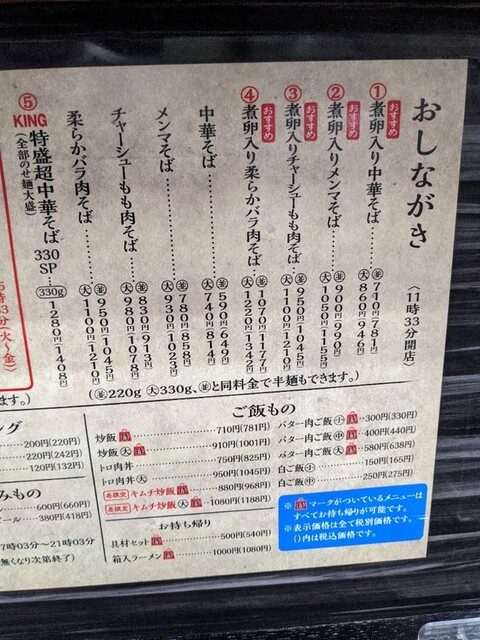 おしながき
(11時33分開店)
おすすめ
① 煮卵入り中華そば…… 並 710円(781円)
大 860円(946円)
おすすめ
② 煮卵入りメンマそば…… 並 900円(990円)
大 1050円(1155円)
おすすめ
③ 煮卵入りチャーシューもも肉そば 並 950円(1045円)
大 1100円(1210円)
おすすめ
④ 煮卵入り柔らかバラ肉そば… 並 1070円(1177円)
大 1220円(1342円)
中華そば…… 並 590円(649円)
大 740円(814円)
メンマそば…… 並 780円(858円)
大 930円(1023円)
チャーシューもも肉そば…… 並 830円(913円)
大 980円(1078円)
柔らかバラ肉そば…… 並 950円(1045円)
大 1100円(1210円)
⑤ KING 特盛超中華そば 330SP
(全部のせ麺大盛)
330g 1280円(1408円)
(並220g 大330g、並と同料金で半麺もできます。)
5時33分(火〜金)
ます。)
ご飯もの
炒飯…… 710円(781円)
炒飯大…… 910円(1001円)
トロ肉丼…… 750円(825円)
トロ肉丼大…… 950円(1045円)
冬限定 キムチ炒飯 880円(968円)
冬限定 キムチ炒飯大 1080円(1188円)
バター肉ご飯小…300円(330円)
バター肉ご飯中…400円(440円)
バター肉ご飯大…580円(638円)
白ご飯小…… 150円(165円)
白ご飯中…… 250円(275円)
お持ち帰り
具材セット…… 500円(540円)
箱入ラーメン…… 1000円(1080円)
※ マークがついているメニューは
すべてお持ち帰りが可能です。
※表示価格は全て税別価格です。
()内は税込価格です。
ング
200円(220円)
220円(242円)
120円(132円)
みもの
ール…… 600円(660円)
ール…… 380円(418円)
17時03分〜21時03分
無くなり次第終了)